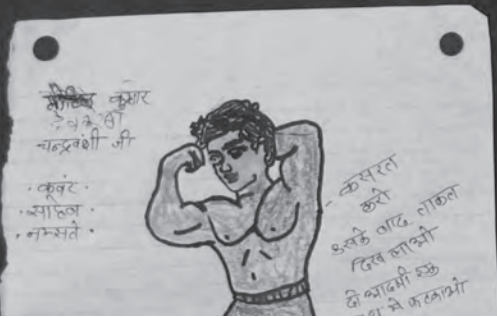 कुमार
चन्द्रवंशी जी
कवंर
साहिल
नमस्ते
कसरत
करो
उसके बाद ताकत
दिखलाओ
दो आदमी एक